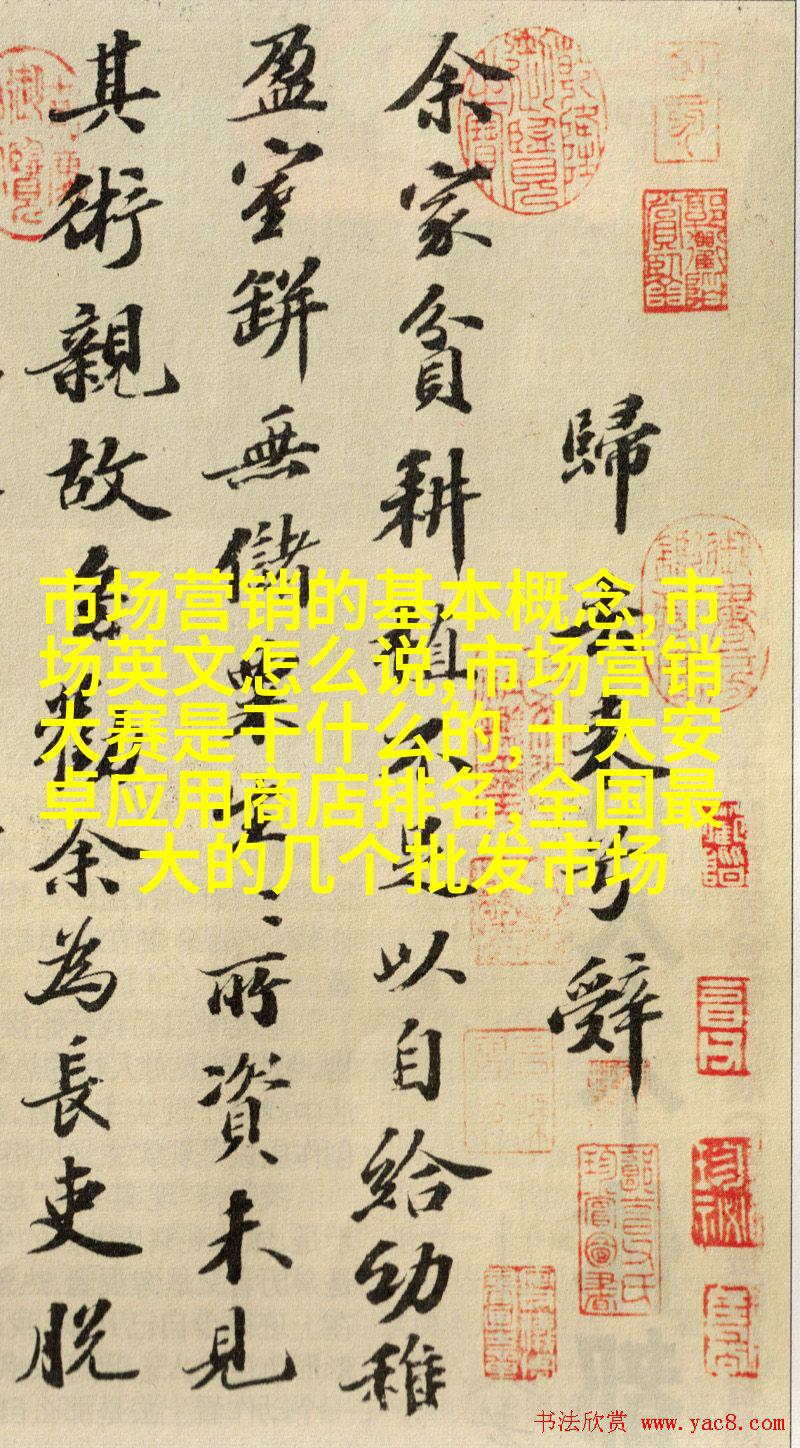 歸去來兮辭
余家貧耕植不足以自給幼稚
盈室缾無儲粟生〻所資未見
其術親故多勸余為長吏脫
市场营销的基本概念,市
场英文怎么说,市场营销
大赛是干什么的,十大安
卓应用商店排名,全国最
大的几个批发市场
书法欣赏 www.yac8.com